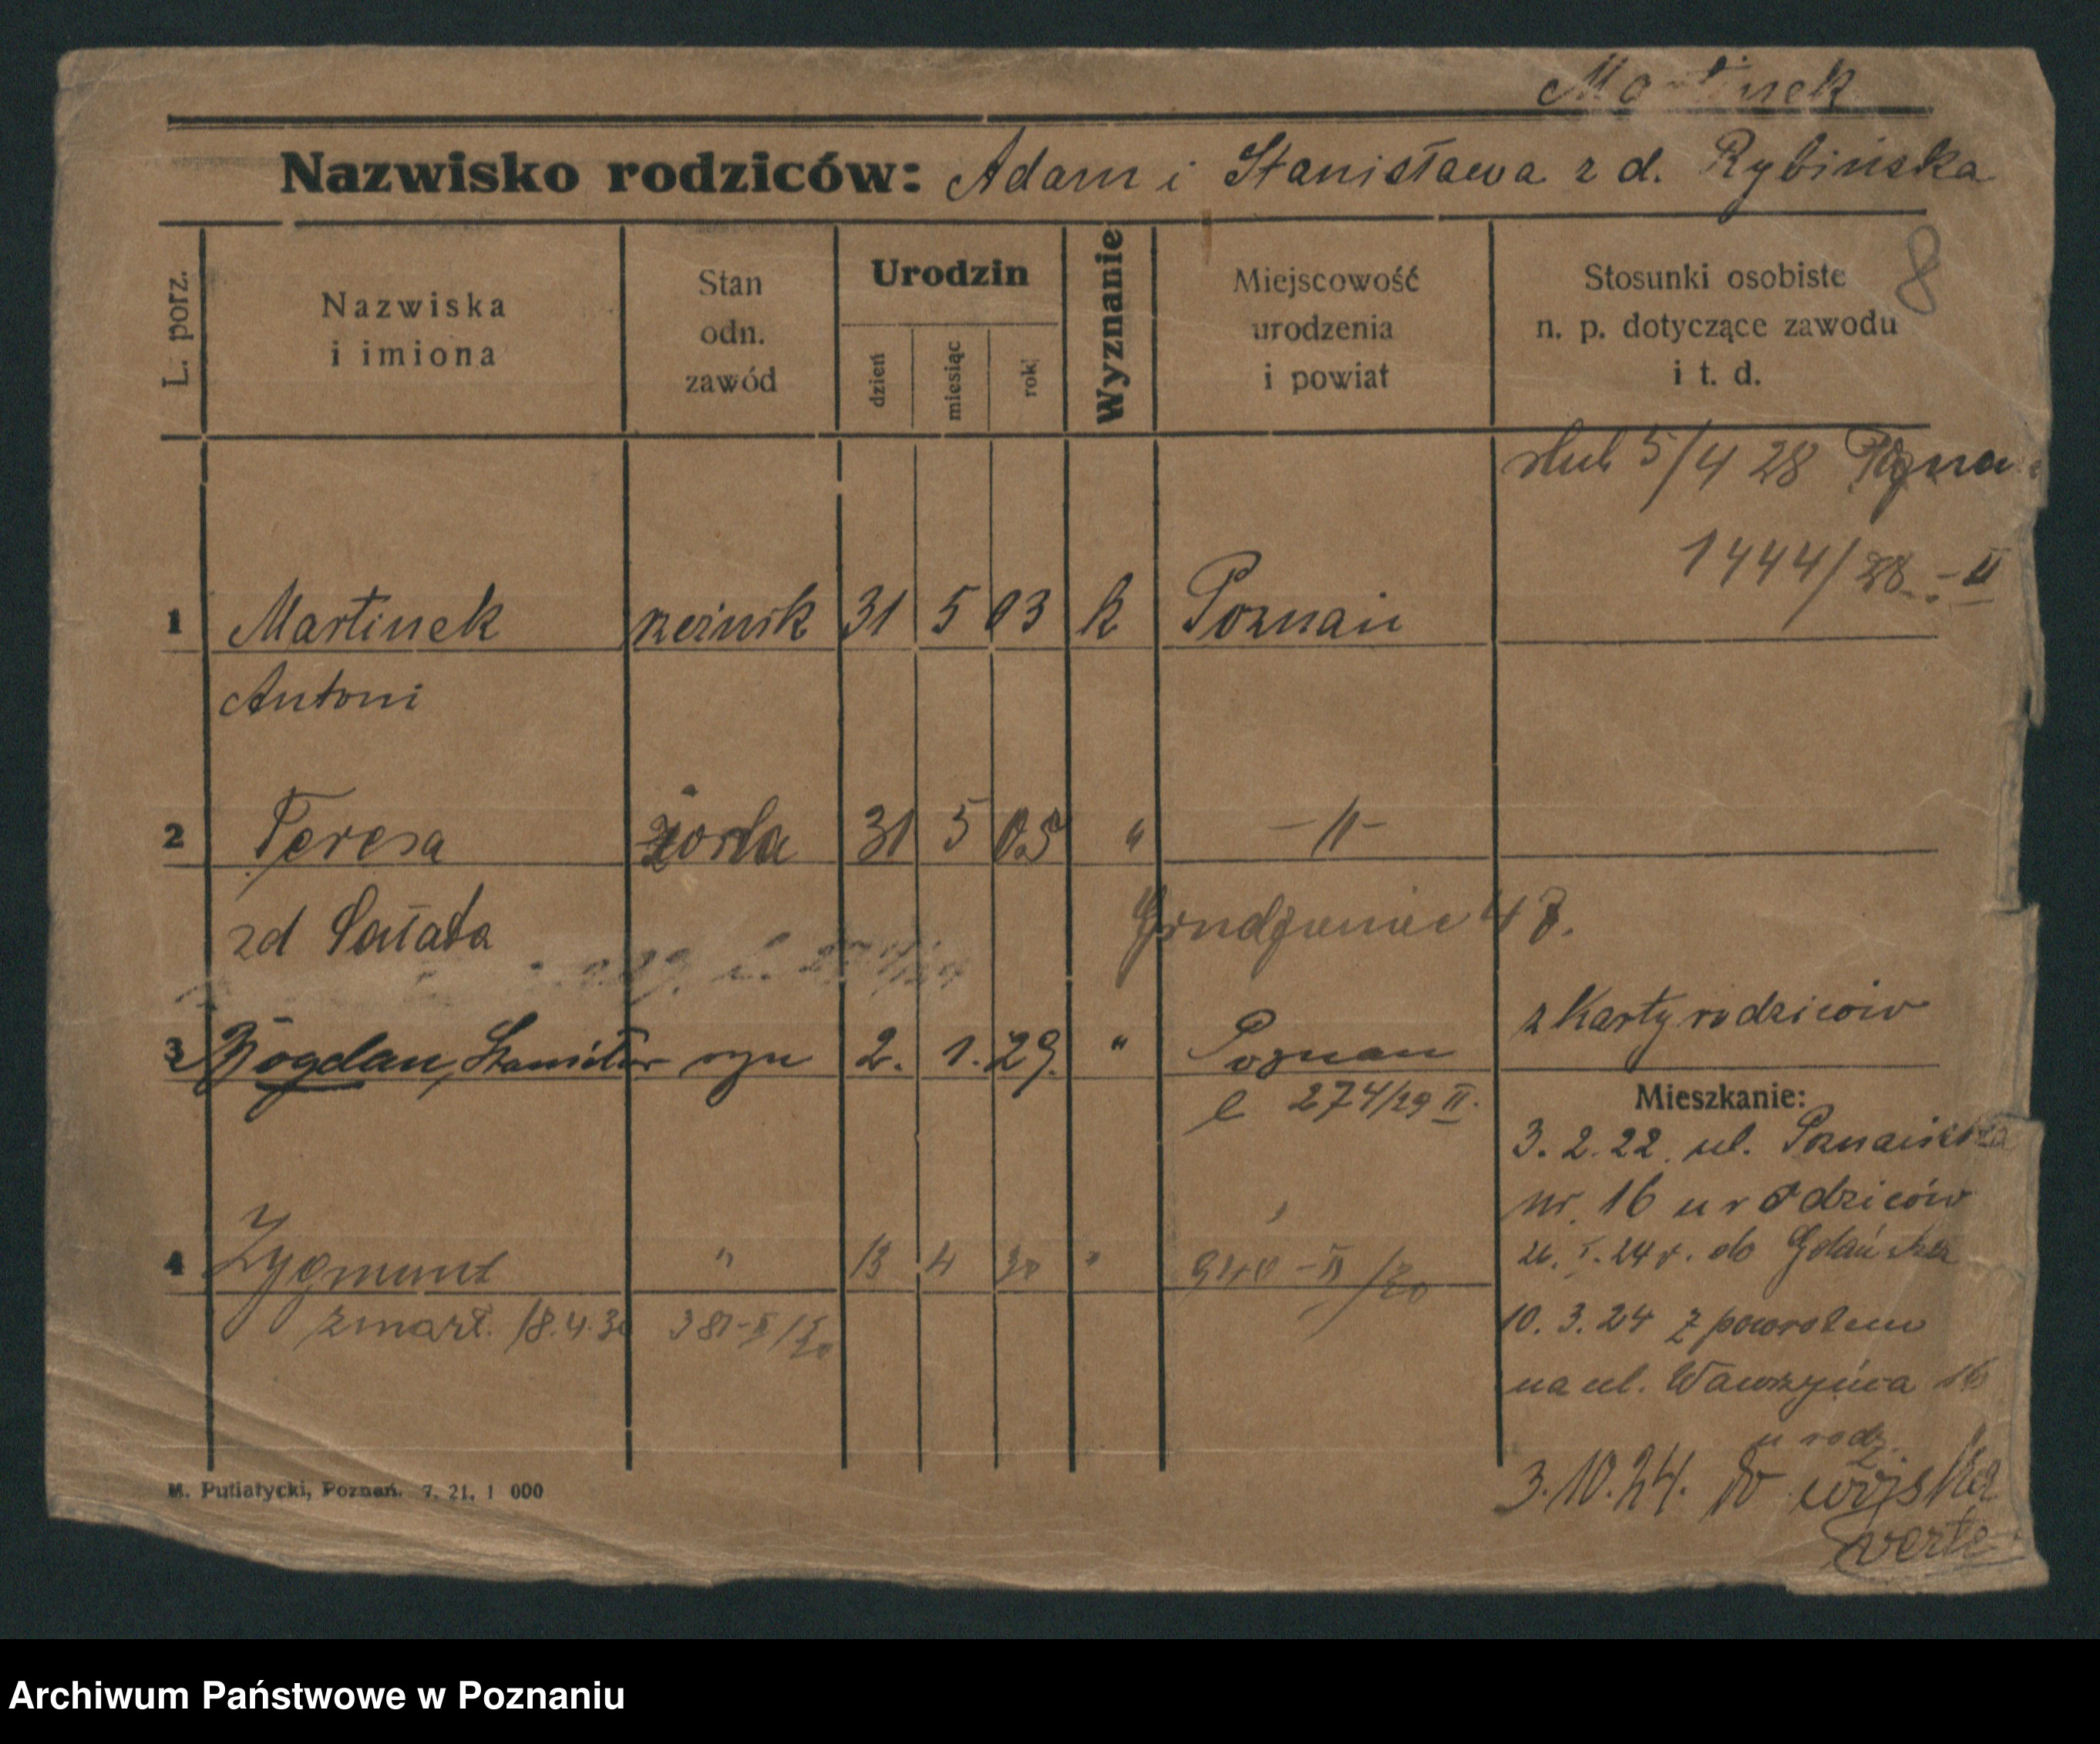 Martinek
Nazwisko rodziców: Adam i Stanisława z d. Rybińska
8
L. porz.
Nazwiska
i imiona
Stan
odn.
zawód
Urodzin
dzień
miesiąc
rok
Wyznanie
Miejscowość
urodzenia
i powiat
Stosunki osobiste
n. p. dotyczące zawodu
i t. d.
ślub 5/4 28
1444/28 - II
1 Martinek rzeźnik 31 5 03 k Poznań
Antoni
2 Teresa żona 31 5 05 " -"-
zd Sałata
z Karty rodziców
3 Bogdan, Stanisław syn 2. 1. 29. " Poznań
274/29 II.
Mieszkanie:
3. 2. 22. ul. Poznańska
nr. 16 u rodziców
24 r. do Gdańska
4 Zygmunt " 13 4 30 " 940 - II /30
zmarł. 18.4.30 381-II/30
10. 3. 24 z powrotem
na ul. Wawrzyńca 16
u rodz.
3.10.24. do wojska
verte
M. Putiatycki, Poznań. 7. 21. 1 000
Archiwum Państwowe w Poznaniu